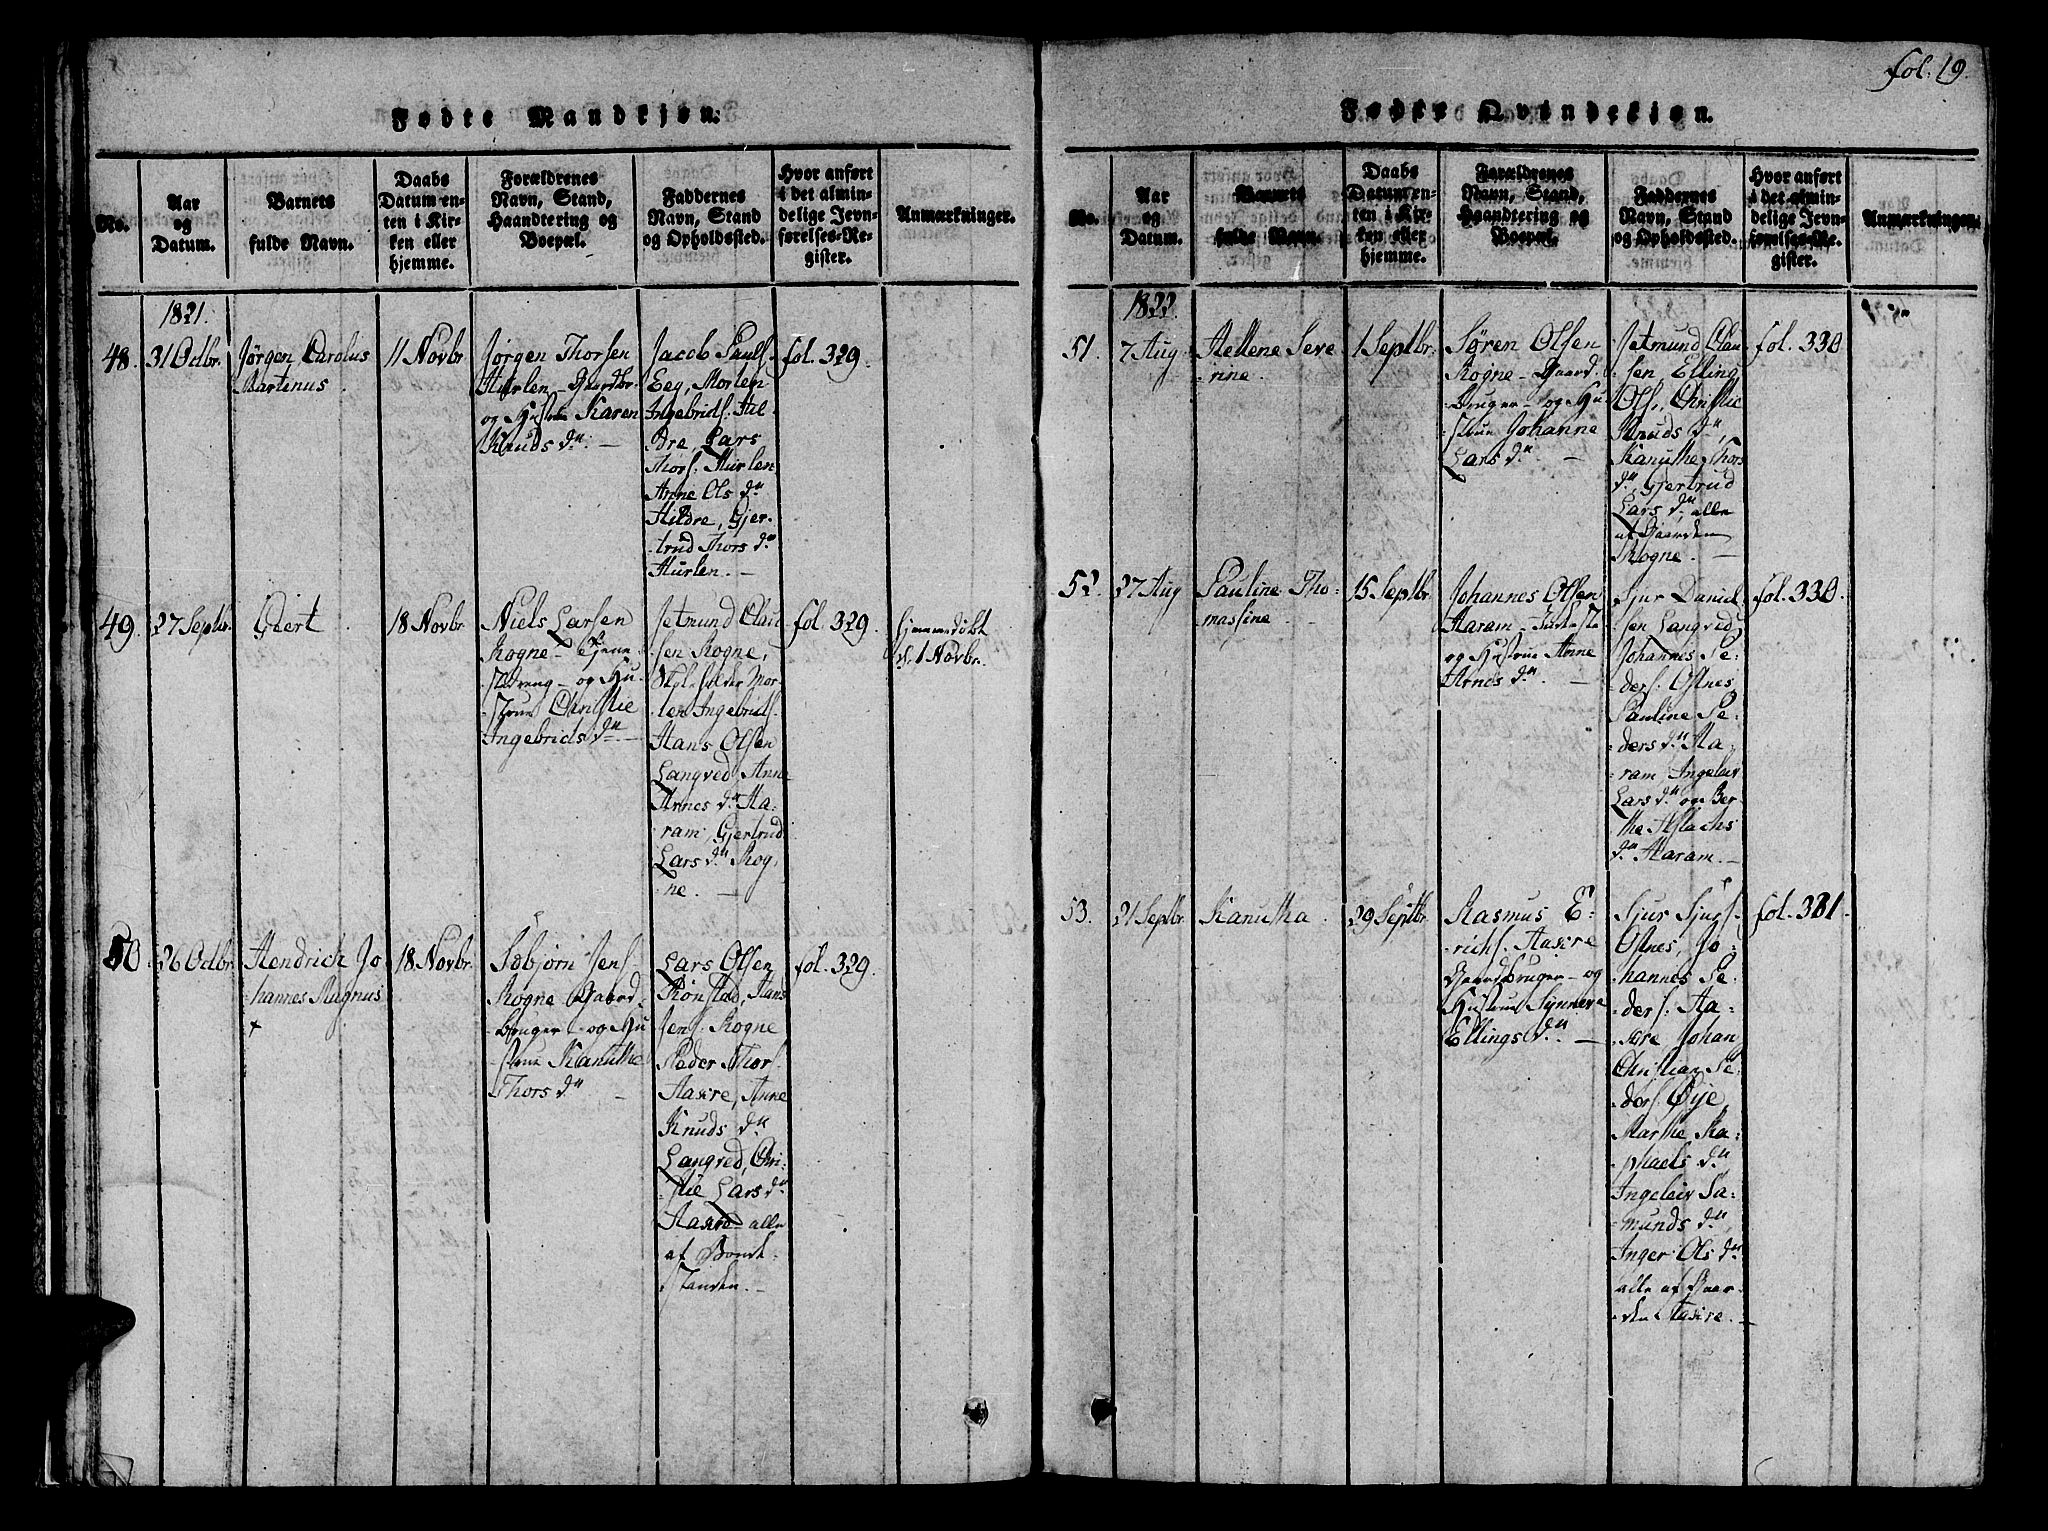 fol. 19.
Fødte Mandkjøn.
No.
Aar
og
Datum.
Barnets
fulde Navn.
Daabs
Datum en-
ten i Kir-
ken eller
hjemme.
Forældrenes
Navn, Stand,
Haandtering og
Boepæl.
Faddernes
Navn, Stand
og Opholdssted.
Hvor anført
i det almin-
delige Jevn-
førelses-Re-
gister.
Anmærkninger.
1821.
48.
31 Octbr.
Jørgen Carolus
Martinus
11 Novbr
Jørgen Thorsen
Hurlen, Gaardbr.
og Hustrue Karen
Knuds dr. —
Jacob Pauls.
Eeg, Morten
Ingebrids. Hil-
dre, Lars
Thors. Hurlen
Anne Ols dr.
Hildre, Gjer-
trud Thors dr.
Hurlen. —
fol. 329.
49.
27 Septbr.
Giert
18 Novbr
Niels Larsen
Rogne — Tjene-
stedreng — og Hu-
strue Christie
Ingebrids dr. —
Jetmund Clau-
sen Rogne,
Morten Ingebrids.
Hans Olsen
Langved, Anne
Arnes dr. Ha-
ram, Gjertrud
Lars dr. Rog-
ne. —
fol. 329.
hjemmedøbt
d. 1 Novbr.
50
26 Octbr
Hendrich Jo
hannes Magnus
+
18 Novbr
Sæbjørn Jens.
Rogne Gaard-
bruger — og Hu
strue Kanuthe
Thors dr. —
Lars Olsen
Rønstad, Hans
Jens. Rogne
Peder Thors.
Aakre, Anne
Knuds dr.
Langved, Chri-
stie Lars dr.
Aakre — alle
af Bonde-
standen. —
fol. 329.
Fødte Qvindekjøn.
No.
Aar
og
Datum.
Barnets
fulde Navn.
Daabs
Datum en-
ten i Kir-
ken eller
hjemme.
Forældrenes
Navn, Stand,
Haandtering og
Boepæl.
Faddernes
Navn, Stand
og Opholdssted.
Hvor anført
i det almin-
delige Jevn-
førelses-Re-
gister.
Anmærkninger.
1822.
51.
7 Aug
Hellene Seve
rine
1 Septbr.
Søren Olsen
Rogne — Gaard-
bruger — og Hu-
strue Johanne
Lars dr. —
Jetmund Clau-
sen Elling
Ols., Christie
Knuds dr.,
Kanuthe Thors
dr., Gjertrud
Lars dr. alle
af Gaarden
Rogne. —
fol. 330
52.
27 Aug
Pauline Tho-
massine
15 Septbr
Johannes Olsen
Haram
og Hustrue Anne
Arnes dr. —
Sjur Daniel-
sen Langved,
Johannes Pe-
ders. Ostnes
Pauline Pe-
ders dr. Ha-
ram, Ingeleiv
Lars dr. og Ber-
the Aslachs
dr. Haram. —
fol. 330.
53.
21 Septbr.
Kanutha
29 Septbr.
Rasmus E-
richs. Aakre
Gaardbruger — og
Hustrue Synneve
Ellings dr. —
Sjur Sjurs.
Ostnes, Jo-
hannes Pe-
ders. Aa-
kre, Johan
Christian Pe-
ders. Øye
Marthe Ra-
phaels dr.
Ingeleiv Sa-
munds dr.,
Inger Ols dr.
alle af Gaar-
den Aakre. —
fol. 331.